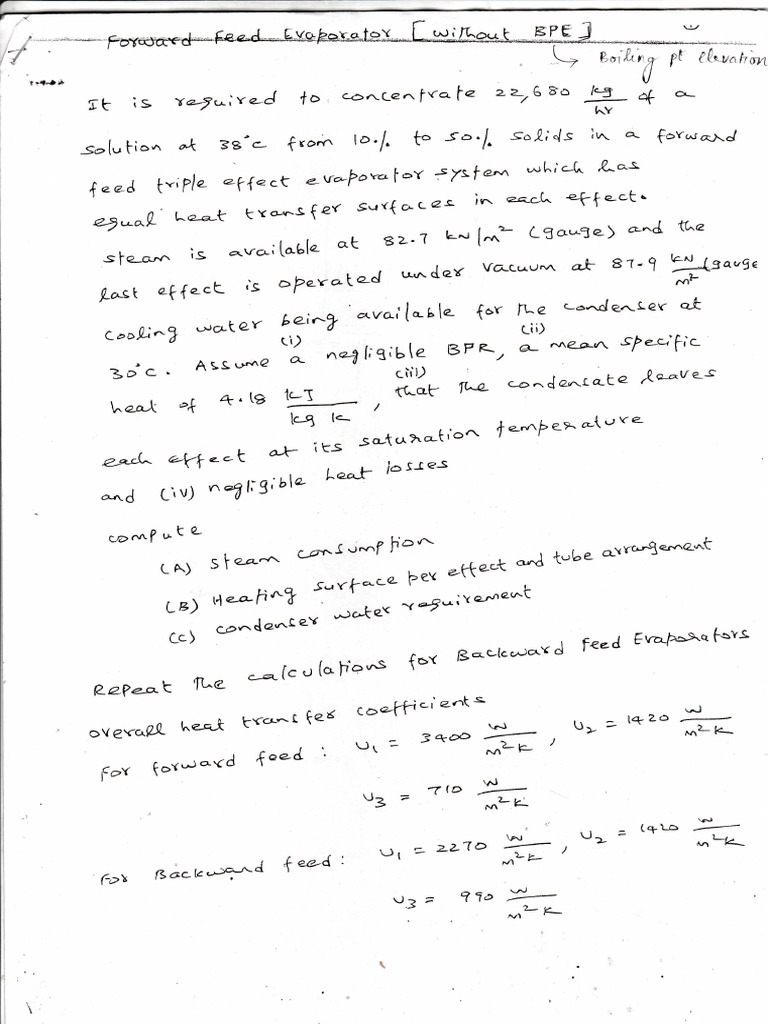 Forward Feed Evaporator [without BPE]
↳ Boiling pt elevation
It is required to concentrate 22,680 kg/hr of a
solution at 38°c from 10.% to 50.% solids in a forward
feed triple effect evaporator system which has
equal heat transfer surfaces in each effect.
steam is available at 82.7 kN/m² (gauge) and the
last effect is operated under vacuum at 87.9 kN/m² (gauge
cooling water being available for the condenser at
30°c. Assume (i) a negligible BPR, (ii) a mean specific
heat of 4.18 kJ/kg k, (iii) that the condensate leaves
each effect at its saturation temperature
and (iv) negligible heat losses
compute
(A) steam consumption
(B) Heating surface per effect and tube arrangement
(C) condenser water requirement
Repeat the calculations for Backward Feed Evaporators
overall heat transfer coefficients
For forward feed : U₁ = 3400 W/m²K, U₂ = 1420 W/m²K
U₃ = 710 W/m²K
For Backward feed : U₁ = 2270 W/m²K, U₂ = 1420 W/m²K
U₃ = 990 W/m²K